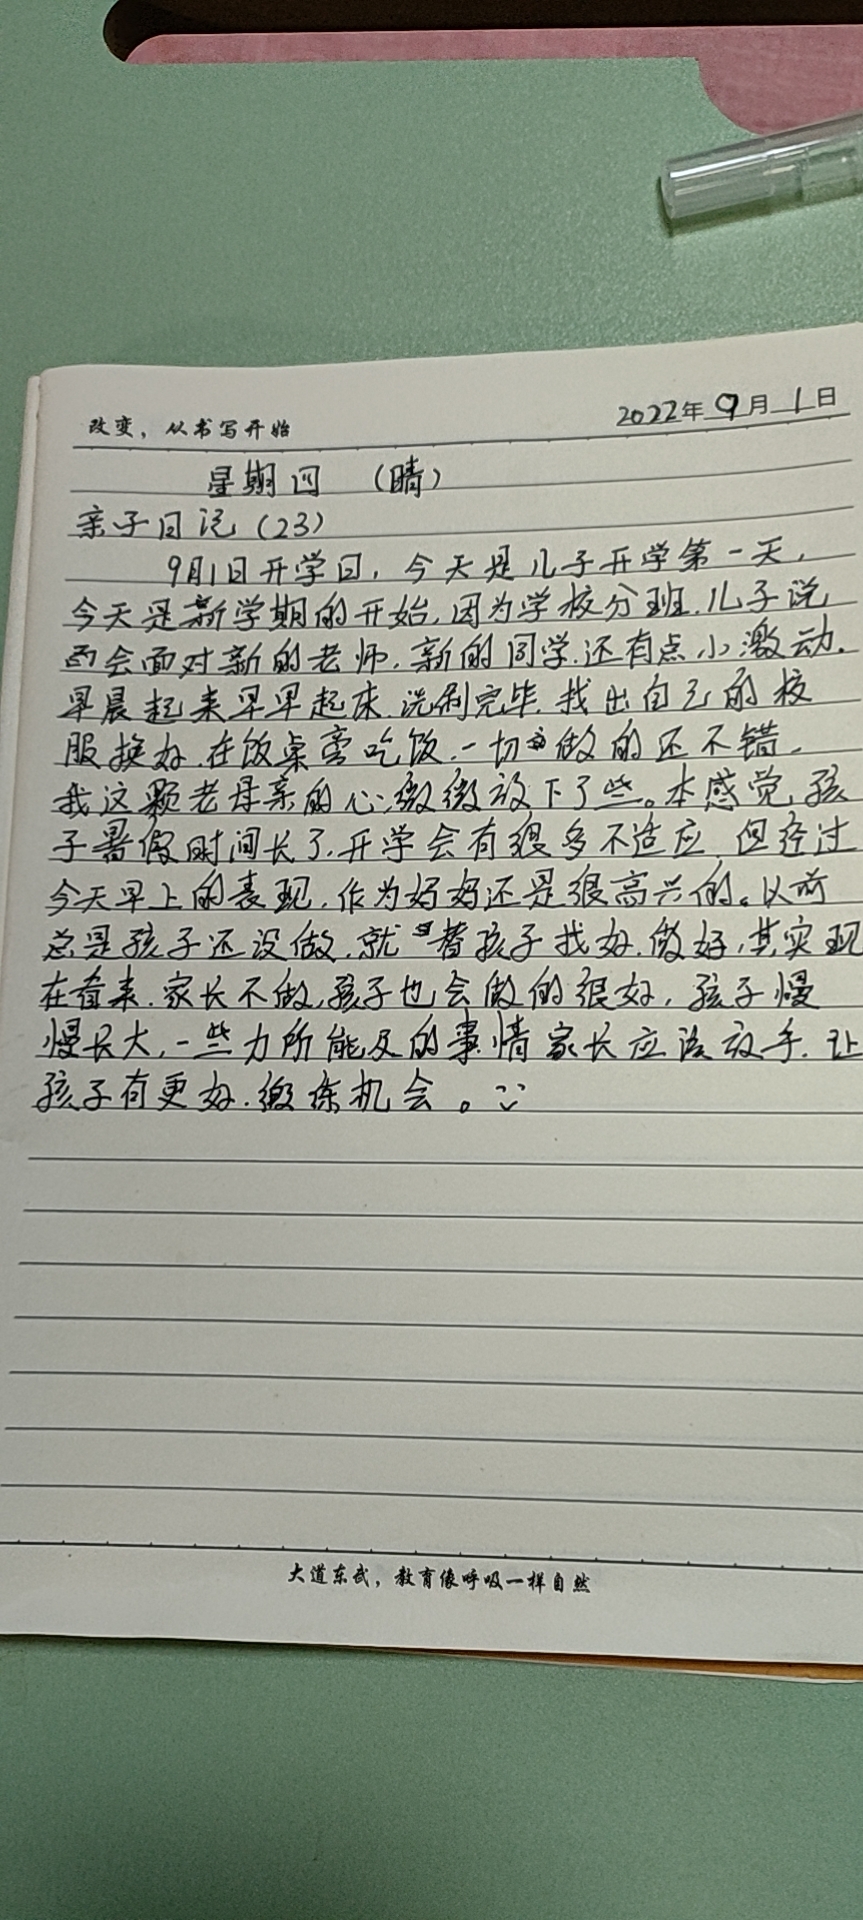 改变，从书写开始
2022年9月1日
星期四 （晴）
亲子日记（23）
9月1日开学日，今天是儿子开学第一天，
今天是新学期的开始，因为学校分班，儿子说
要会面对新的老师，新的同学，还有点小激动。
早晨起来早早起床，洗刷完毕，找出自己的校
服换好，在饭桌旁吃饭，一切做的还不错。
我这颗老母亲的心，微微放下了些。本感觉，孩
子暑假时间长了，开学会有很多不适应，但经过
今天早上的表现，作为妈妈还是很高兴的。以前
总是孩子还没做，就替孩子找好，做好，其实现
在看来，家长不做，孩子也会做的很好，孩子慢
慢长大，一些力所能及的事情家长应该放手，让
孩子有更好，锻练机会。
大道东武，教育像呼吸一样自然